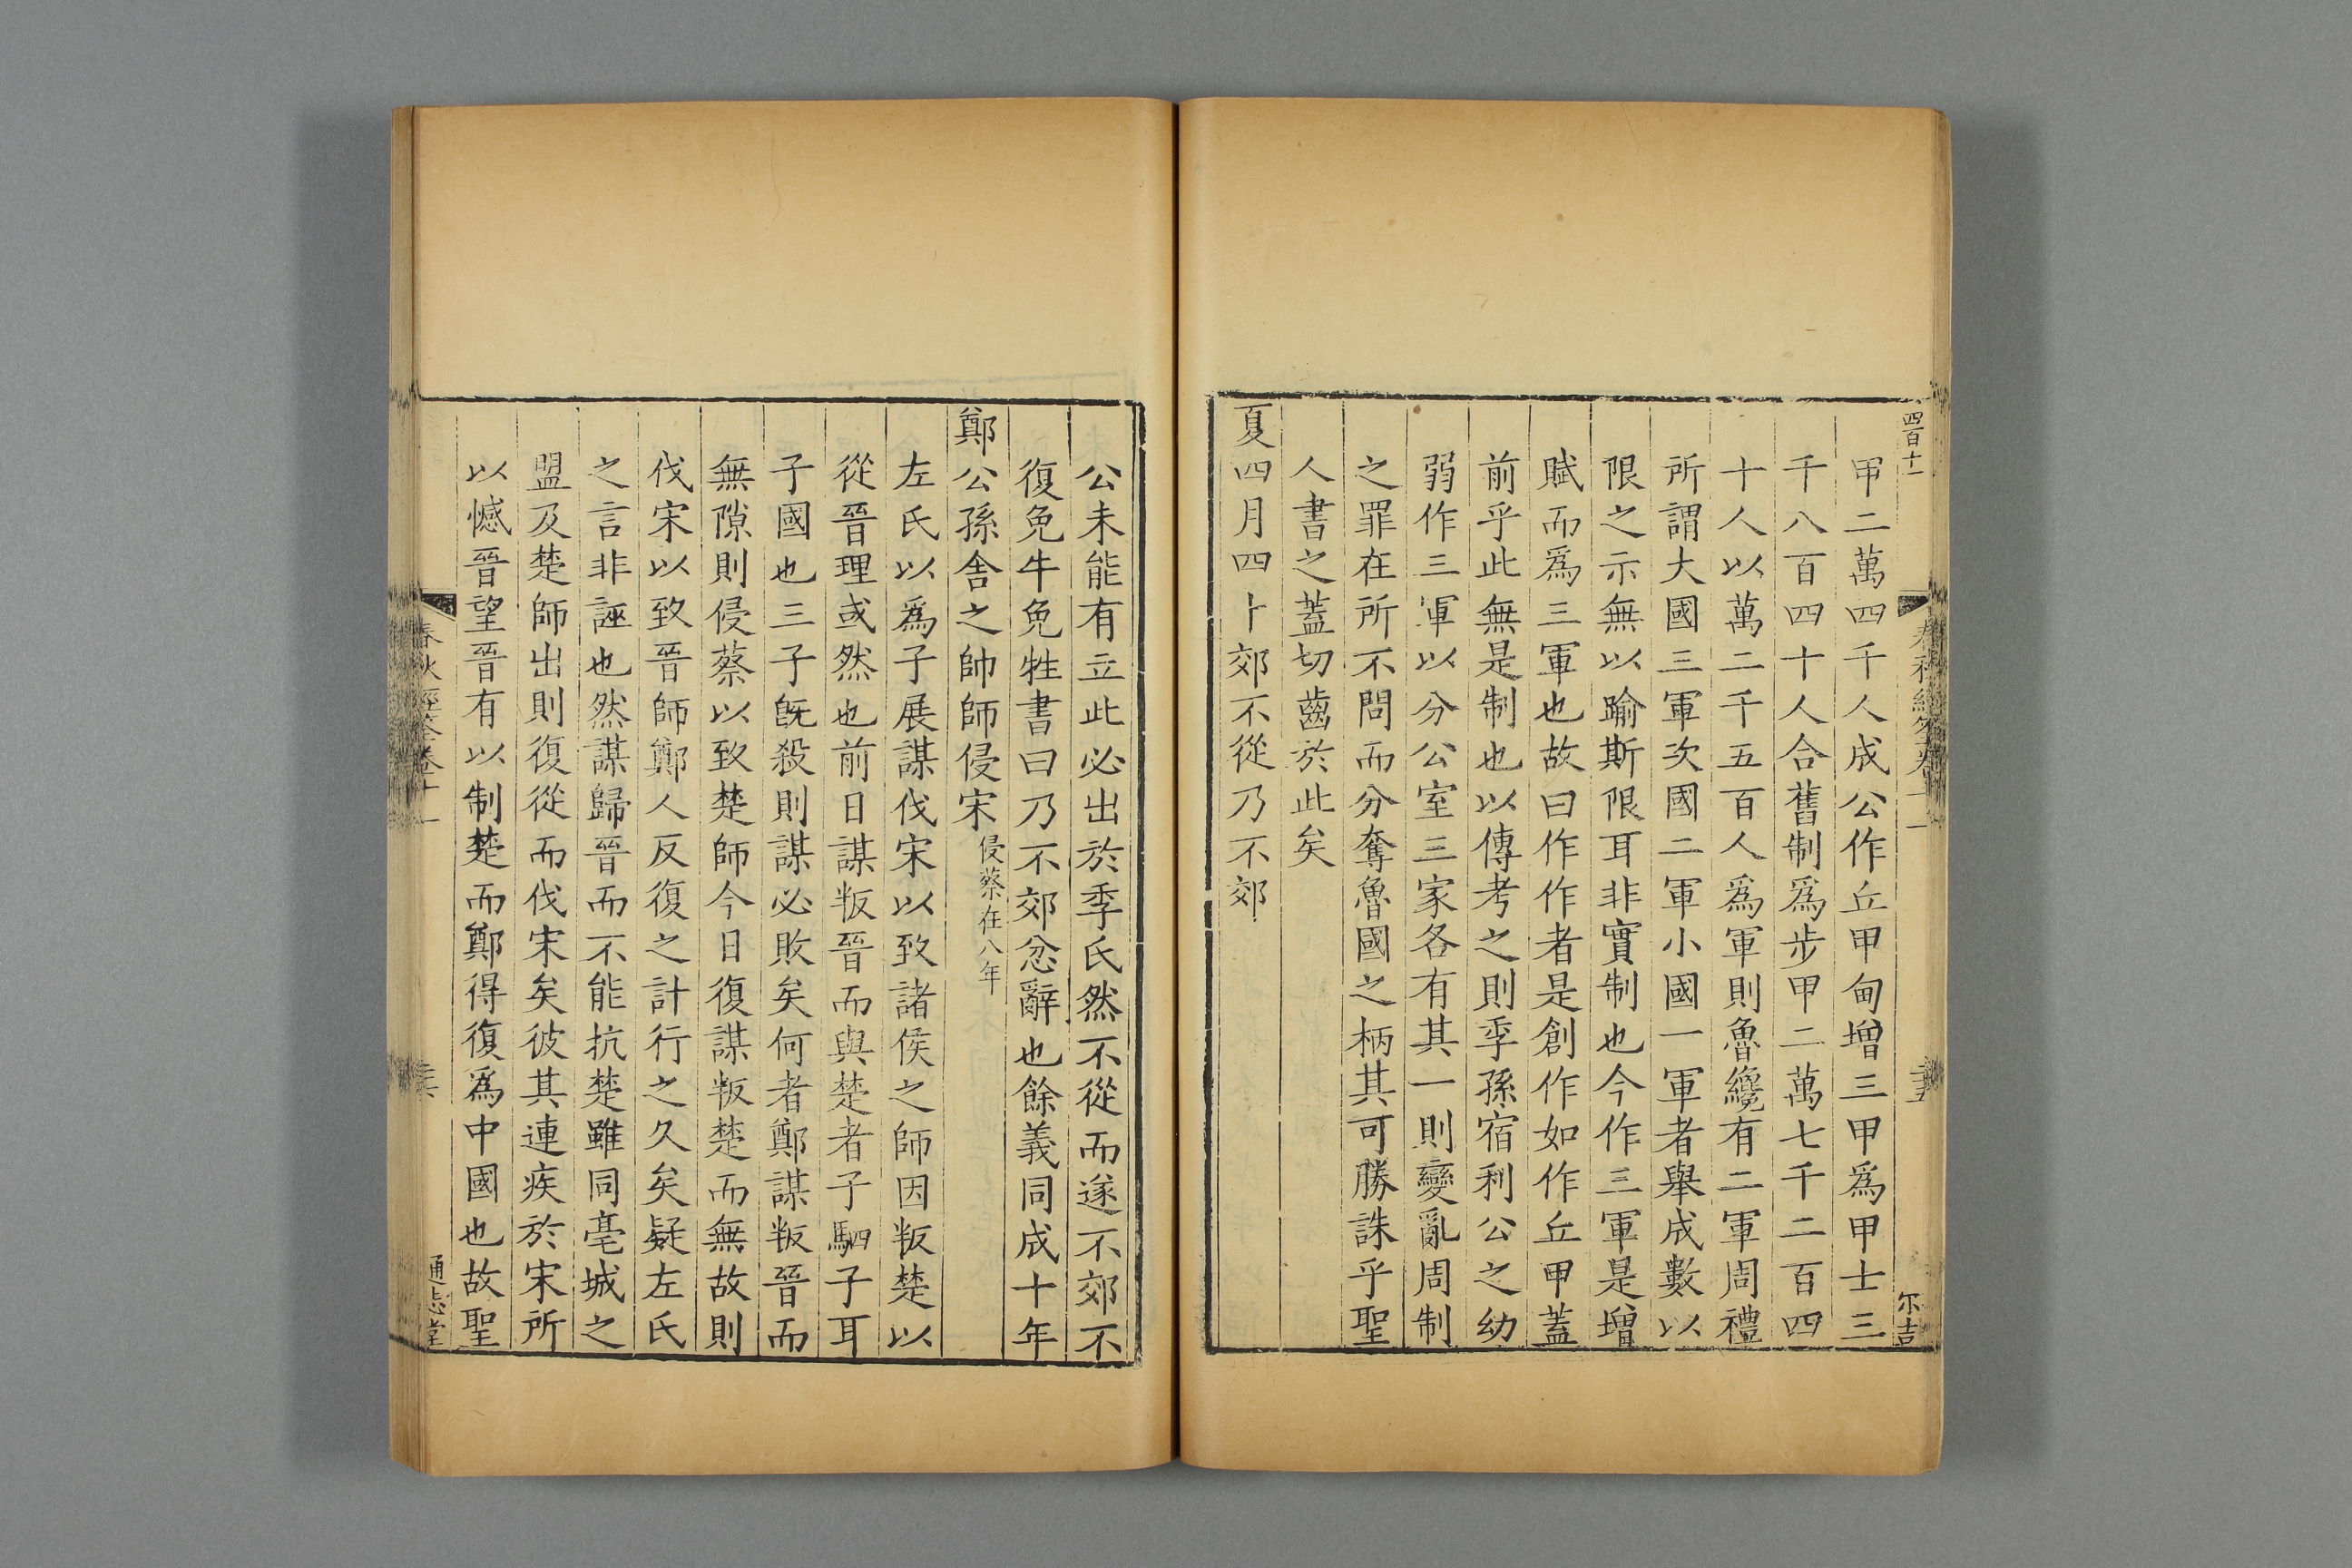 四百十一
甲二萬四千人成公作丘甲甸增三甲爲甲士三
千八百四十人合舊制爲步甲二萬七千二百四
十人以萬二千五百人爲軍則魯纔有二軍周禮
所謂大國三軍次國二軍小國一軍者舉成數以
限之示無以踰斯限耳非實制也今作三軍是增
賦而爲三軍也故曰作作者是創作如作丘甲蓋
前乎此無是制也以傳考之則季孫宿利公之幼
弱作三軍以分公室三家各有其一則變亂周制
之罪在所不問而分奪魯國之柄其可勝誅乎聖
人書之蓋切齒於此矣
夏四月四卜郊不從乃不郊
公未能有立此必出於季氏然不從而遂不郊不
復免牛免牲書曰乃不郊忿辭也餘義同成十年
鄭公孫舍之帥師侵宋侵蔡在八年
左氏以爲子展謀伐宋以致諸侯之師因叛楚以
從晉理或然也前日謀叛晉而與楚者子駟子耳
子國也三子既殺則謀必敗矣何者鄭謀叛晉而
無隙則侵蔡以致楚師今日復謀叛楚而無故則
伐宋以致晉師鄭人反復之計行之久矣疑左氏
之言非誣也然謀歸晉而不能抗楚雖同亳城之
盟及楚師出則復從而伐宋矣彼其連疾於宋所
以憾晉望晉有以制楚而鄭得復爲中國也故聖
春秋經筌卷十一
通志堂